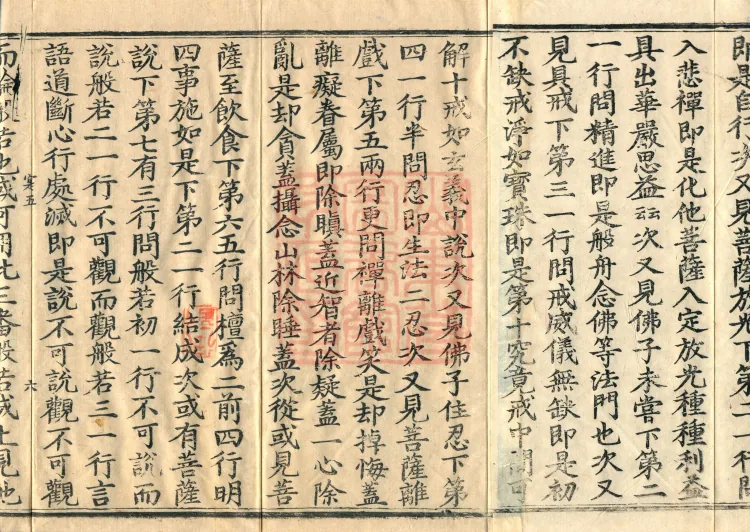 即是自行次又見菩薩放光下第一行問
入悲禪即是化他菩薩入定放光種種利益
具出華嚴思益云云次又見佛子未嘗下第二
一行問精進即是般舟念佛等法門也次又
見具戒下第三一行問戒威儀無缺即是初
不缺戒淨如寶珠即是第十究竟戒中間可
解十戒如玄義中說次又見佛子住忍下第
四一行半問忍即生法二忍次又見菩薩離
戲下第五兩行更問禪離戲笑是却掉悔蓋
離癡眷屬即除瞋蓋近智者除疑蓋一心除
亂是却貪蓋攝念山林除睡蓋次從或見菩
薩至飲食下第六五行問檀為二前四行明
四事施如是下第二一行結成次或有菩薩
說下第七有三行問般若初一行不可說而
說般若二一行不可觀而觀般若三一行言
語道斷心行處滅即是說不可說觀不可觀
寔五
六
而論般若也或可用此三番般若或上見他